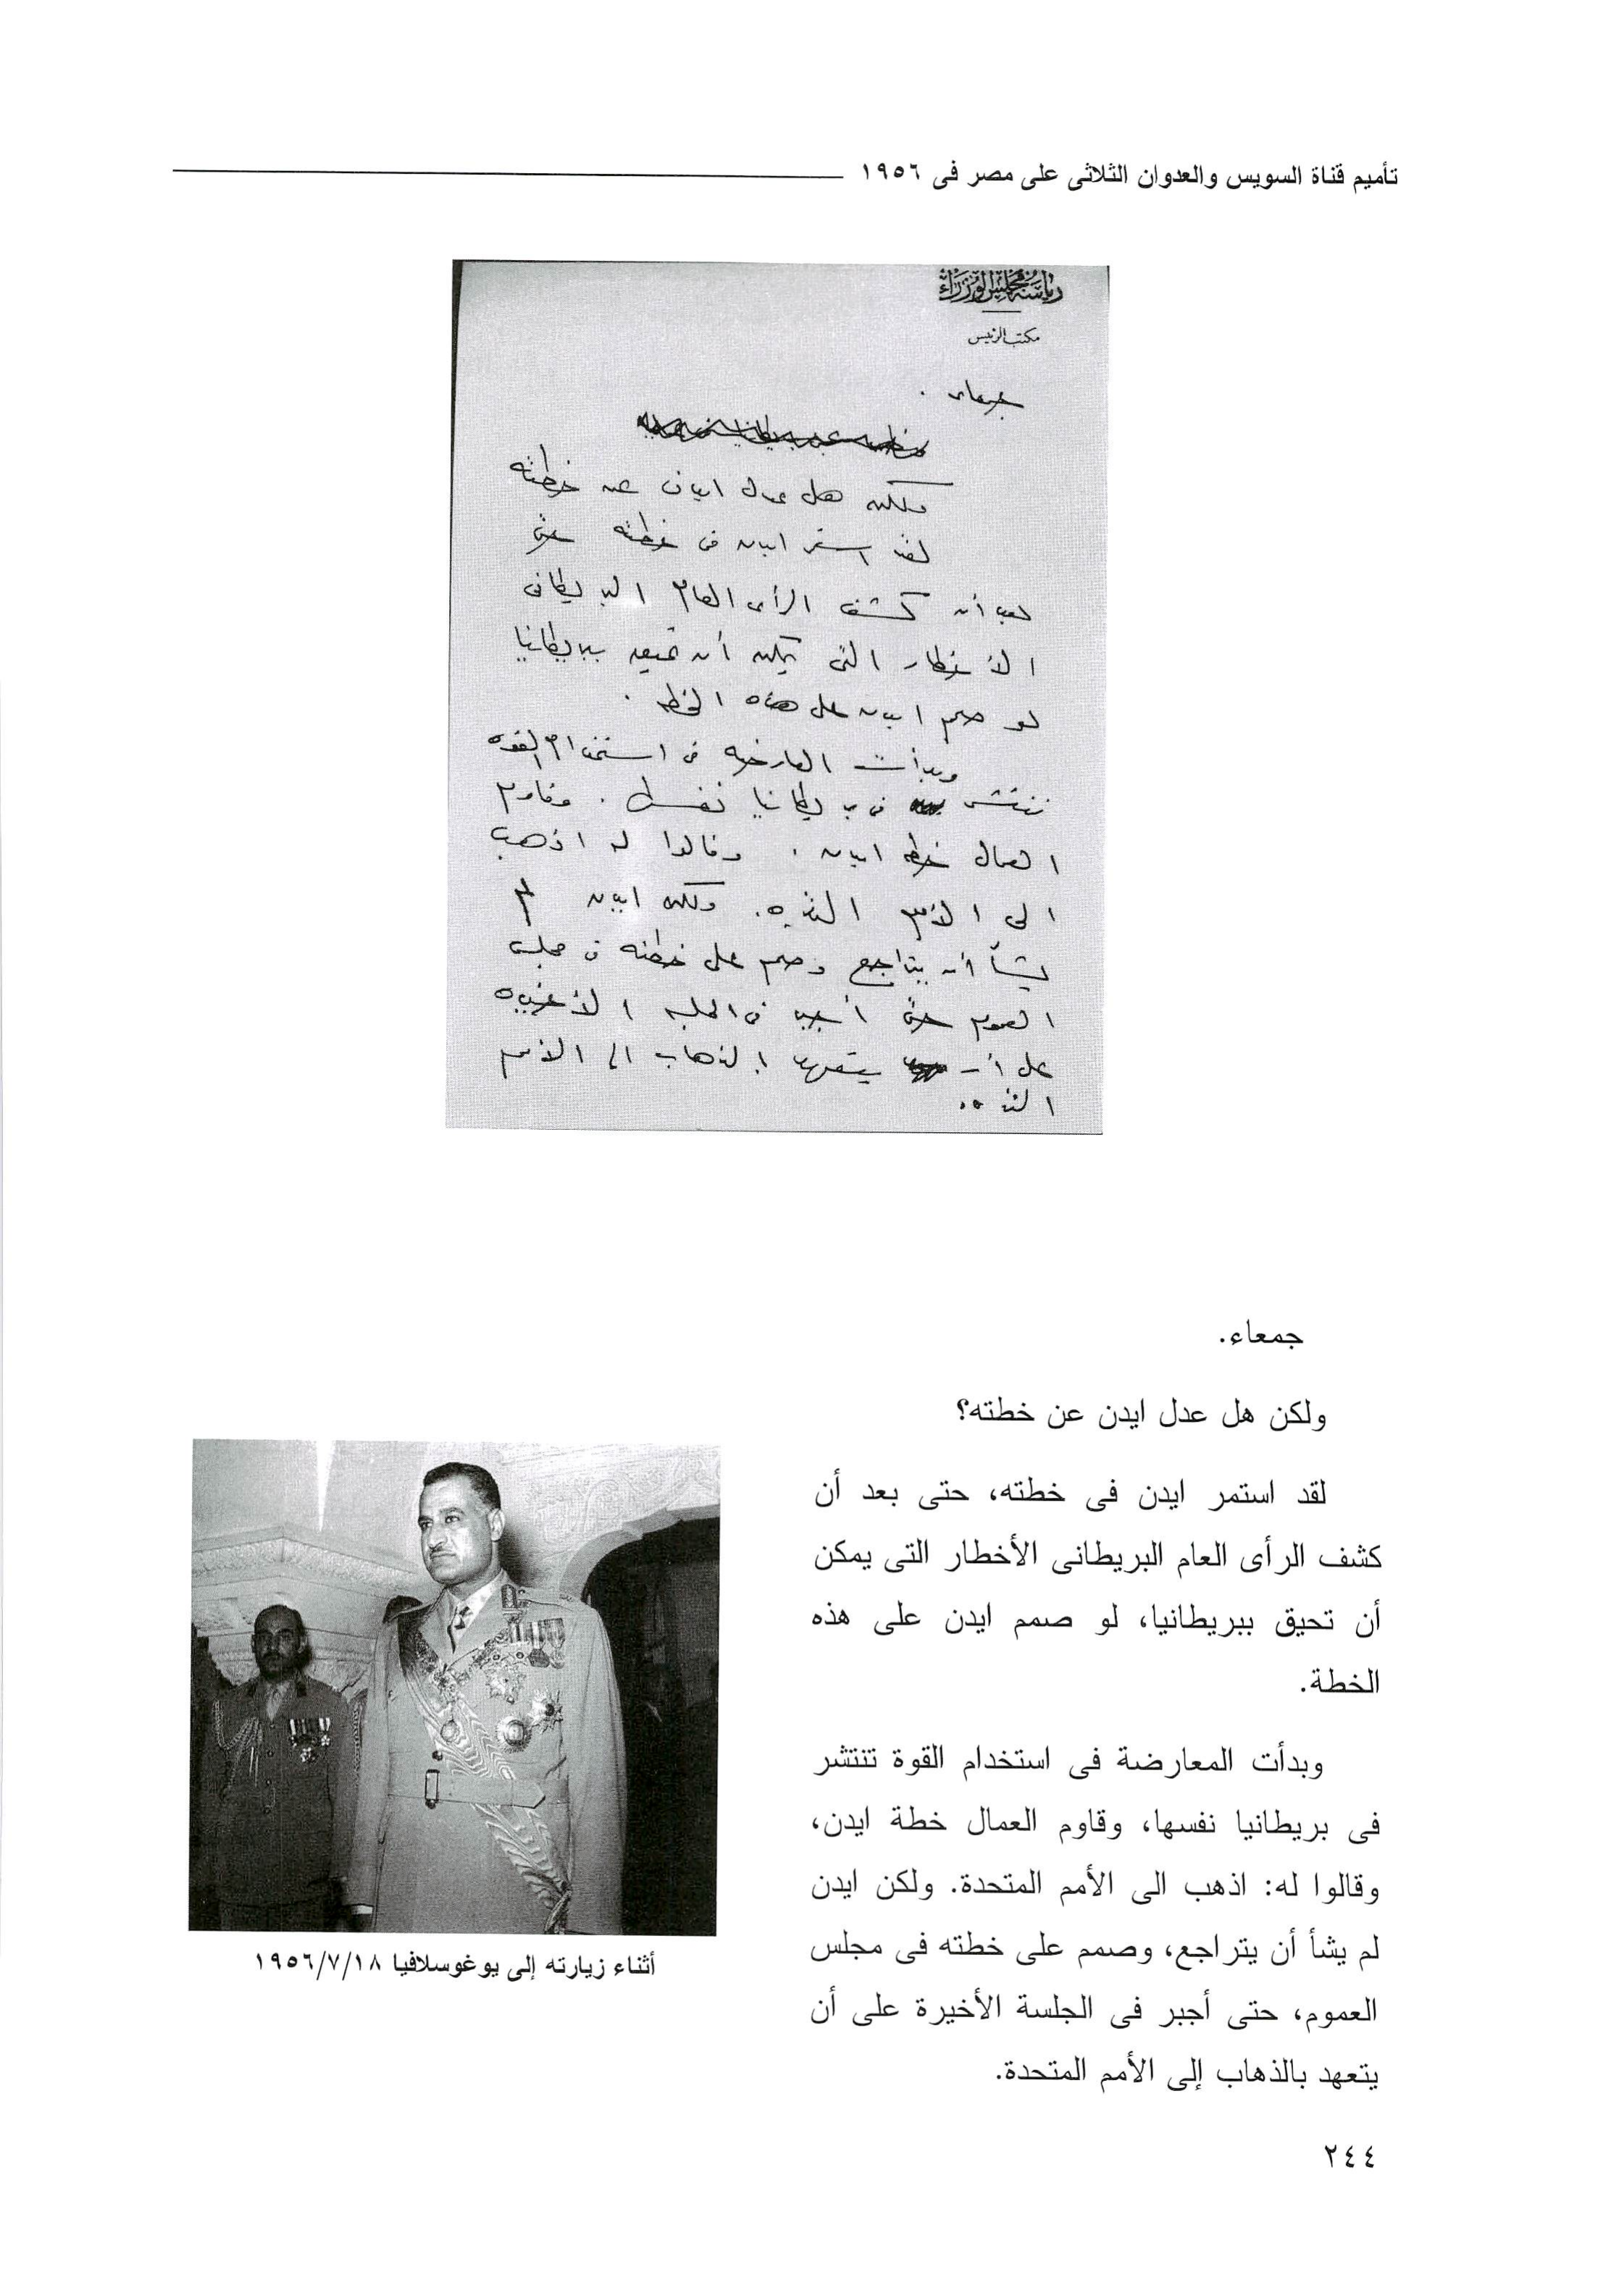 تأميم قناة السويس والعدوان الثلاثى على مصر فى ١٩٥٦
رياسة مجلس الوزراء
مكتب الرئيس
جمعاء .
ولكن هل عدل ايدن عن خطته
لقد استمر ايدن فى خطته حتى
بعد أن كشف الرأى العام البريطانى
الأخطار التى يمكن أن تحيق ببريطانيا
لو صمم ايدن على هذه الخطه .
وبدأت المعارضه فى استخدام القوه
تنتشر فى بريطانيا نفسها . وقاوم
العمال خطه ايدن . وقالوا له اذهب
الى الأمم المتحده . ولكن ايدن لم
يشأ أن يتراجع وصمم على خطته فى مجلس
العموم حتى أجبر فى الجلسه الأخيره
على أن يتعهد بالذهاب الى الأمم
المتحده .
جمعاء.
ولكن هل عدل ايدن عن خطته؟
لقد استمر ايدن فى خطته، حتى بعد أن
كشف الرأى العام البريطانى الأخطار التى يمكن
أن تحيق ببريطانيا، لو صمم ايدن على هذه
الخطة.
وبدأت المعارضة فى استخدام القوة تنتشر
فى بريطانيا نفسها، وقاوم العمال خطة ايدن،
وقالوا له: اذهب الى الأمم المتحدة. ولكن ايدن
لم يشأ أن يتراجع، وصمم على خطته فى مجلس
العموم، حتى أجبر فى الجلسة الأخيرة على أن
يتعهد بالذهاب إلى الأمم المتحدة.
أثناء زيارته إلى يوغوسلافيا ١٩٥٦/٧/١٨
٢٤٤